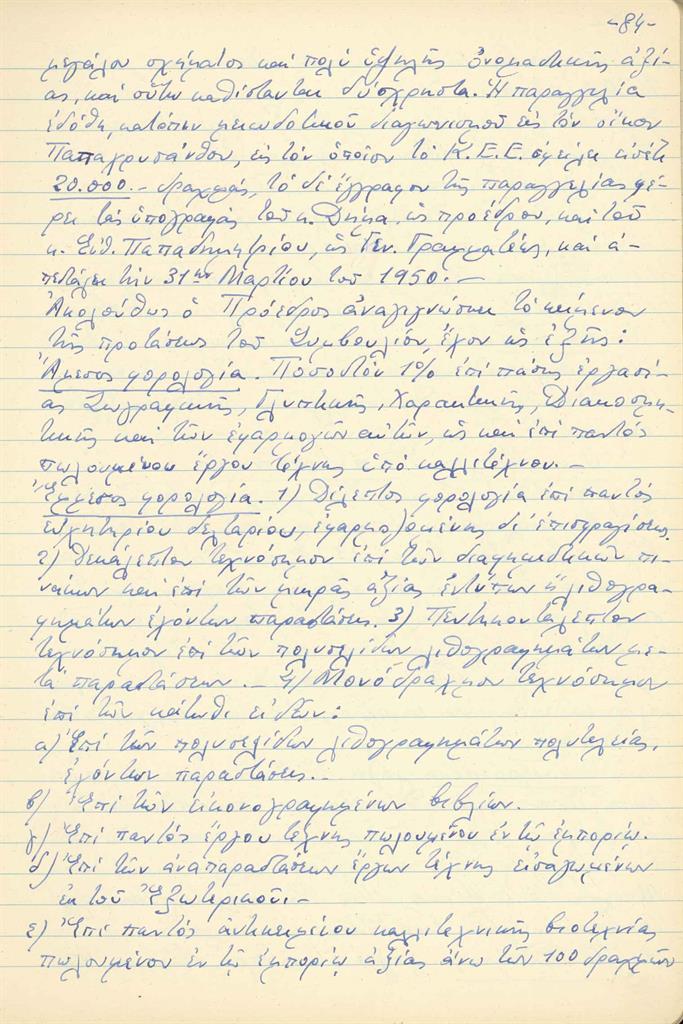 -84-
μεγάλου σχήματος καὶ πολὺ ὑψηλῆς ὀνομαστικῆς ἀξί-
ας, καὶ οὕτω καθίστανται δύσχρηστα. Ἡ παραγγελία
ἐδόθη, κατόπιν μειοδοτικοῦ διαγωνισμοῦ εἰς τὸν οἶκον
Παπαχρυσάνθου, εἰς τὸν ὁποῖον τὸ Κ.Ε.Ε. ὀφείλει εἰσέτι
20.000.- δραχμάς, τὸ δὲ ἔγγραφον τῆς παραγγελίας φέ-
ρει τὰς ὑπογραφὰς τοῦ κ. Δήμα, ὡς προέδρου, καὶ τοῦ
κ. Εὐθ. Παπαδημητρίου, ὡς Γεν. Γραμματέως, καὶ ἀ-
πεστάλει τὴν 31ην Μαρτίου τοῦ 1950.-
Ἀκολούθως ὁ Πρόεδρος ἀναγιγνώσκει τὸ κείμενον
τῆς προτάσεως τοῦ Συμβουλίου, ἔχον ὡς ἑξῆς:
Ἄμεσος φορολογία. Ποσοστὸν 1% ἐπὶ πάσης ἐργασί-
ας Ζωγραφικῆς, Γλυπτικῆς, Χαρακτικῆς, Διακοσμη-
τικῆς καὶ τῶν ἐφαρμογῶν αὐτῶν, ὡς καὶ ἐπὶ παντὸς
πωλουμένου ἔργου τέχνης ὑπὸ καλλιτέχνου.-
Ἔμμεσος φορολογία. 1) Δίλεπτος φορολογία ἐπὶ παντὸς
εὐχητηρίου δελταρίου, ἐφαρμοζομένης δι' ἐπισφραγίσεως.
2) Δεκάλεπτον τεχνόσημον ἐπὶ τῶν διαφημιστικῶν πι-
νάκων καὶ ἐπὶ τῶν μικρᾶς ἀξίας ἐντύπων ἢ λιθογρα-
φημάτων ἐχόντων παραστάσεις. 3) Πεντηκοντάλεπτον
τεχνόσημον ἐπὶ τῶν πολυσελίδων λιθογραφημάτων με-
τὰ παραστάσεων.- 4) Μονόδραχμον τεχνόσημον
ἐπὶ τῶν κάτωθι εἰδῶν:
α) Ἐπὶ τῶν πολυσελίδων λιθογραφημάτων πολυτελείας,
ἐχόντων παραστάσεις.-
β) Ἐπὶ τῶν εἰκονογραφημένων βιβλίων.
γ) Ἐπὶ παντὸς ἔργου τέχνης πωλουμένου ἐν τῷ ἐμπορίῳ.
δ) Ἐπὶ τῶν ἀναπαραστάσεων ἔργων τέχνης εἰσαγωμένων
ἐκ τοῦ Ἐξωτερικοῦ.-
ε) Ἐπὶ παντὸς ἀντικειμένου καλλιτεχνικῆς βιοτεχνίας
πωλουμένου ἐν τῷ ἐμπορίῳ ἀξίας ἄνω τῶν 100 δραχμῶν